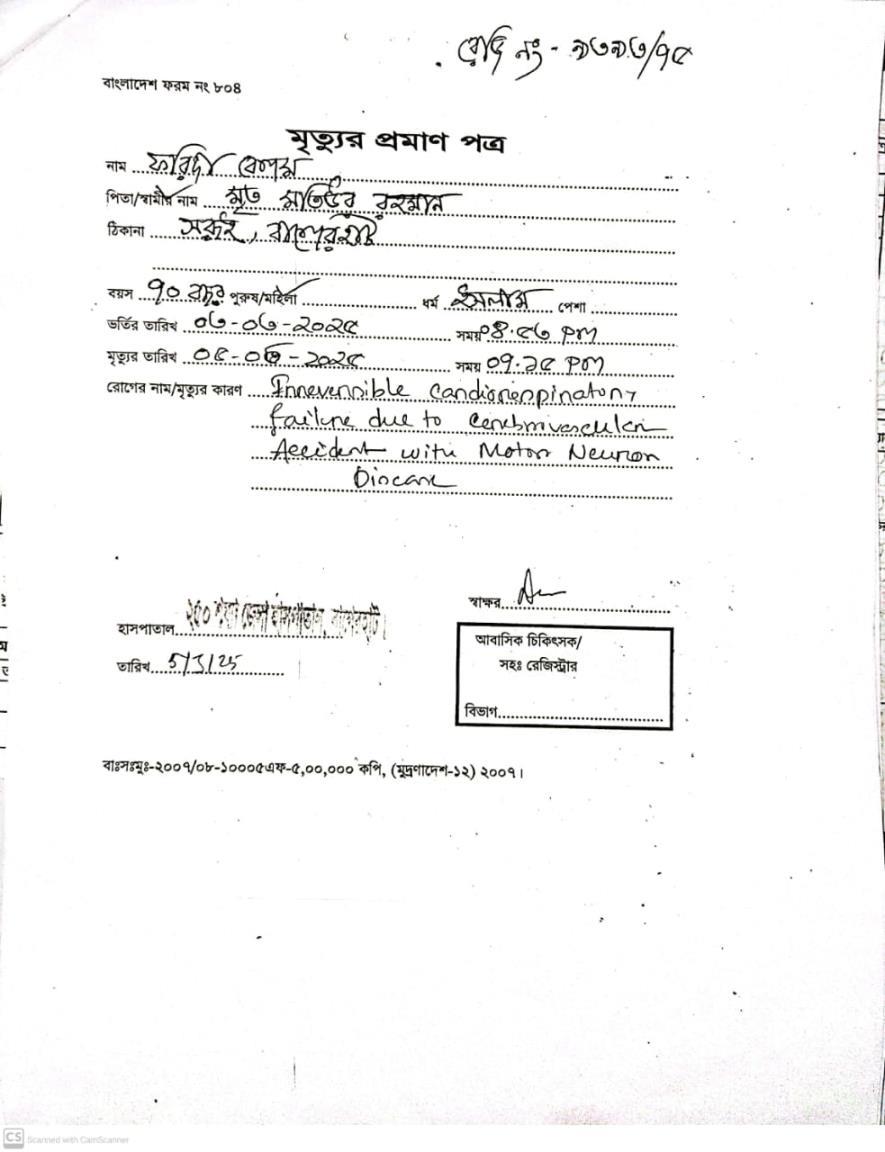 রেজি নং - ৯৩৯৩/৭৫
বাংলাদেশ ফরম নং ৮০৪
মৃত্যুর প্রমাণ পত্র
নাম ফরিদা বেগম
পিতা/স্বামীর নাম মৃত মতিউর রহমান
ঠিকানা সরুই, বাগেরহাট
বয়স ৭০ বছর পুরুষ/মহিলা ধর্ম ইসলাম পেশা
ভর্তির তারিখ ০৩-০৩-২০২৫ সময় ০৪.৫৩ PM
মৃত্যুর তারিখ ০৫-০৩-২০২৫ সময় ০৭.২৫ PM
রোগের নাম/মৃত্যুর কারণ Irreversible Cardiorespiratory
failure due to Cerebrovascular
Accident with Motor Neuron
Disease
স্বাক্ষর
হাসপাতাল ২৫০ শয্যা জেলা হাসপাতাল, বাগেরহাট।
তারিখ 5/3/25
আবাসিক চিকিৎসক/
সহঃ রেজিস্ট্রার
বিভাগ
বাঃসঃমুঃ-২০০৭/০৮-১০০০৫এফ-৫,০০,০০০ কপি, (মুদ্রণাদেশ-১২) ২০০৭।
CS Scanned with CamScanner